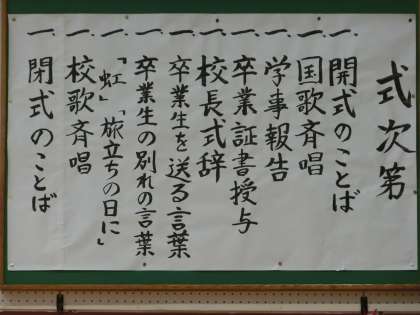 式次第
一、開式のことば
一、国歌斉唱
一、学事報告
一、卒業証書授与
一、校長式辞
一、卒業生を送る言葉
一、卒業生の別れの言葉
一、「虹」「旅立ちの日に」
一、校歌斉唱
一、閉式のことば